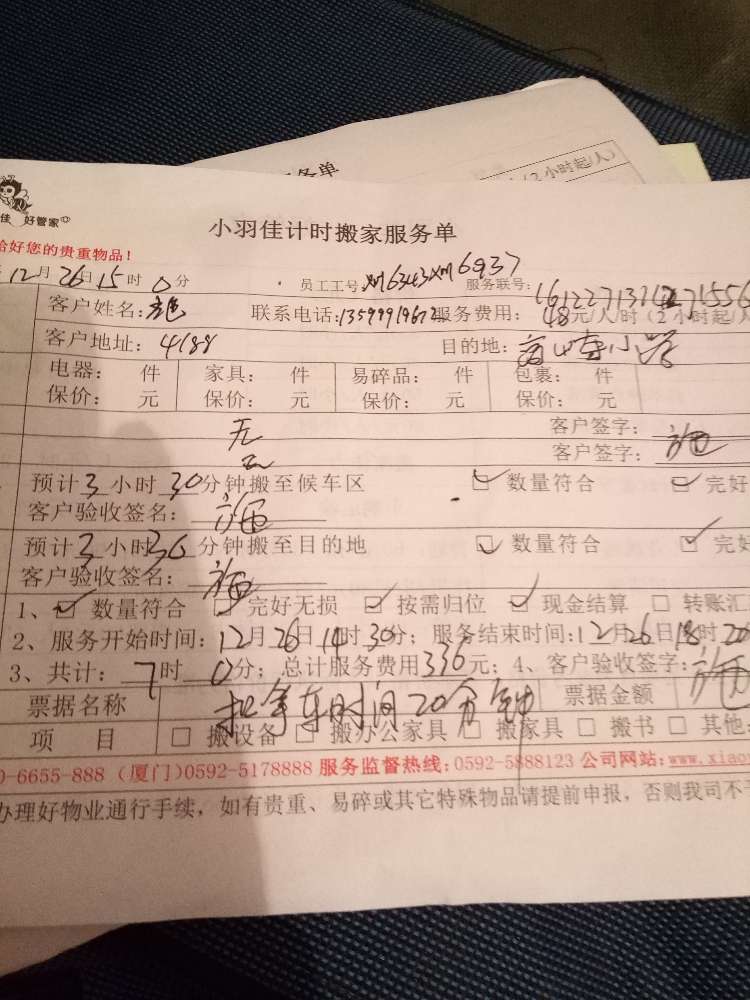 务单
小时起/人）
佳 好管家
小羽佳计时搬家服务单
给好您的贵重物品！
12月26日15时0分 员工工号：XM6343XM6937 服务联号：
客户姓名： 联系电话： 服务费用：48元/人/时（2小时起/人
客户地址：4188 目的地：
电器： 件 家具： 件 易碎品： 件 包裹： 件
保价： 元 保价： 元 保价： 元 保价： 元
无 客户签字：
客户签字：
预计3小时30分钟搬至候车区 数量符合 完好
客户验收签名：
预计3小时30分钟搬至目的地 数量符合 完好
客户验收签名：
1、 数量符合 完好无损 按需归位 现金结算 转账汇
2、服务开始时间：12月26日14时30分；服务结束时间：12月26日18时20
3、共计：7时0分；总计服务费用336元；4、客户验收签字：
票据名称 扣拿车时间20分钟 票据金额
项 目 搬设备 搬办公家具 搬家具 搬书 其他：
0-6655-888（厦门）0592-5178888 服务监督热线：0592-5888123 公司网站：www.xiao
办理好物业通行手续，如有贵重、易碎或其它特殊物品请提前申报，否则我司不予